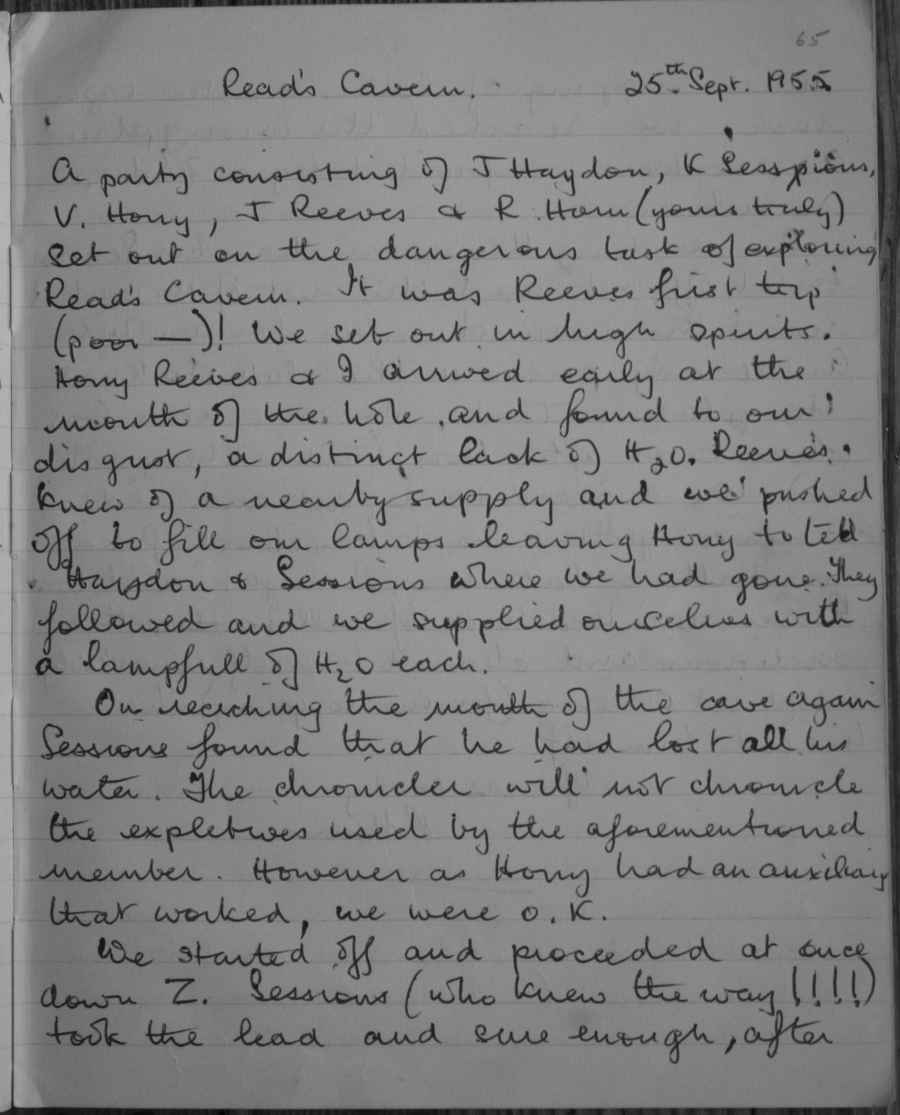 65
Read's Cavern. 25th Sept. 1955
A party consisting of J Haydon, K Sessions,
V. Hony, J Reeves & R. Ham (yours truly)
Set out on the dangerous task of exploring
Read's Cavern. It was Reeves first trip
(poor —)! We set out in high spirits.
Hony Reeves & I arrived early at the
mouth of the hole and found to our
disgust, a distinct lack of H2O. Reeves
knew of a nearby supply and we pushed
off to fill our lamps leaving Hony to tell
Haydon & Sessions where we had gone. They
followed and we supplied ourselves with
a lampfull of H2O each.
On reaching the mouth of the cave again
Sessions found that he had lost all his
water. The chronicler will not chronicle
the expletives used by the aforementioned
member. However as Hony had an auxiliary
that worked, we were O.K.
We started off and proceeded at once
down Z. Sessions (who knew the way!!!!)
took the lead and sure enough, after